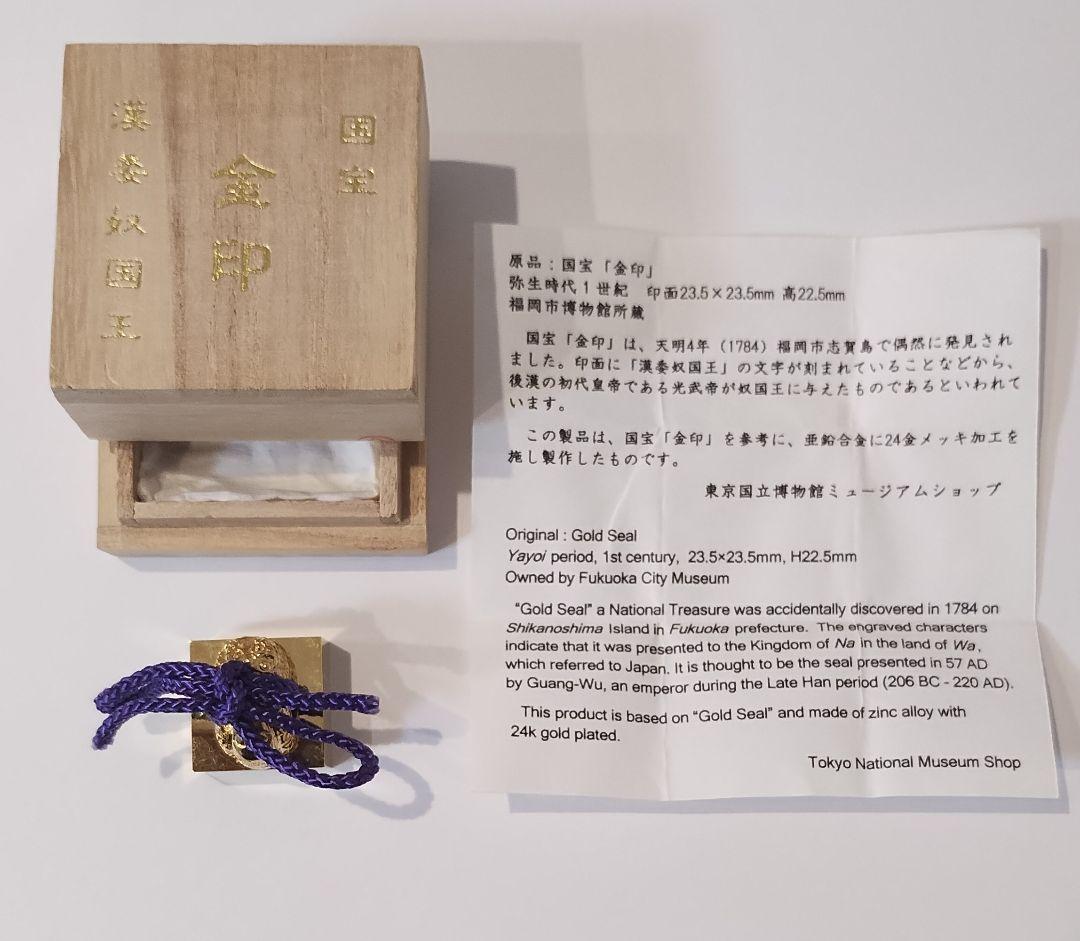 国宝
金印
漢委奴国王
原品：国宝「金印」
弥生時代１世紀　印面23.5×23.5mm 高22.5mm
福岡市博物館所蔵
国宝「金印」は、天明4年（1784）福岡市志賀島で偶然に発見され
ました。印面に「漢委奴国王」の文字が刻まれていることなどから、
後漢の初代皇帝である光武帝が奴国王に与えたものであるといわれて
います。
この製品は、国宝「金印」を参考に、亜鉛合金に24金メッキ加工を
施し製作したものです。
東京国立博物館ミュージアムショップ
Original : Gold Seal
Yayoi period, 1st century, 23.5×23.5mm, H22.5mm
Owned by Fukuoka City Museum
“Gold Seal” a National Treasure was accidentally discovered in 1784 on
Shikanoshima Island in Fukuoka prefecture. The engraved characters
indicate that it was presented to the Kingdom of Na in the land of Wa,
which referred to Japan. It is thought to be the seal presented in 57 AD
by Guang-Wu, an emperor during the Late Han period (206 BC - 220 AD).
This product is based on “Gold Seal” and made of zinc alloy with
24k gold plated.
Tokyo National Museum Shop